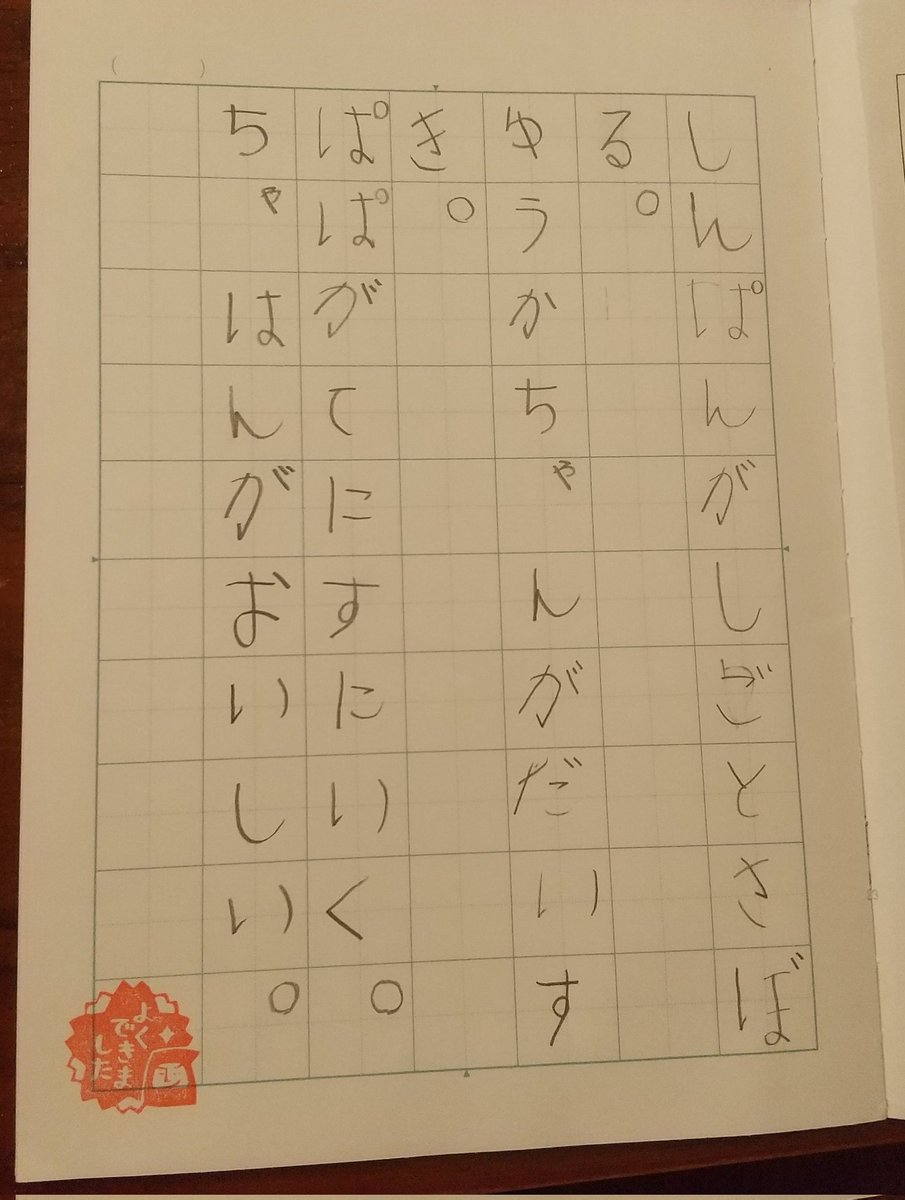 しんぱんがしごとさぼ
る。
ゆうかちゃんがだいす
き。
ぱぱがてにすにいく。
ちゃはんがおいしい。
よく
できま
した